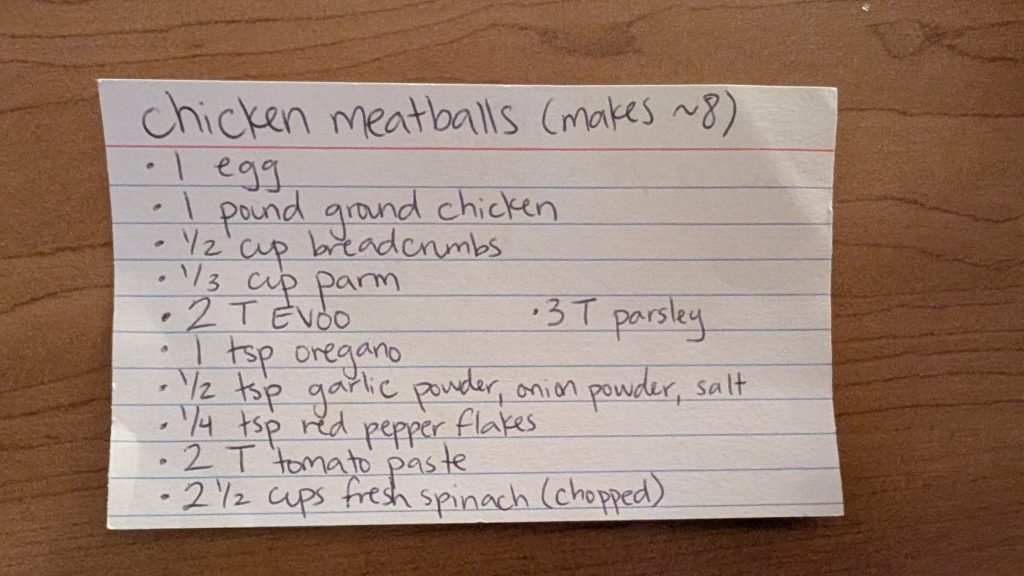 chicken meatballs (makes ~8)
• 1 egg
• 1 pound ground chicken
• 1/2 cup breadcrumbs
• 1/3 cup parm
• 2 T EVOO • 3 T parsley
• 1 tsp oregano
• 1/2 tsp garlic powder, onion powder, salt
• 1/4 tsp red pepper flakes
• 2 T tomato paste
• 2 1/2 cups fresh spinach (chopped)